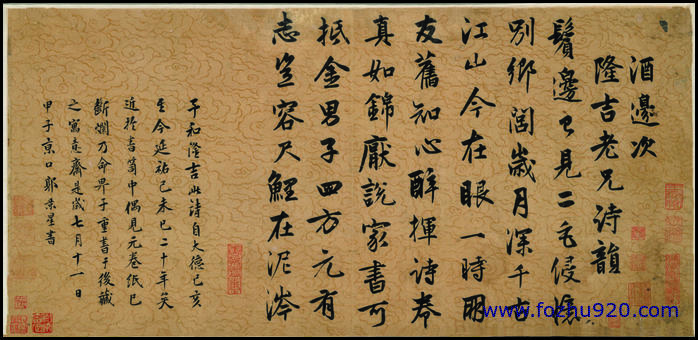 酒邊次
隆吉老兄詩韻
鬢邊已見二毛侵憶
別鄉闊歲月深千古
江山今在眼一時朋
友舊知心醉揮詩卷
真如錦厭說家書可
抵金男子四方元有
志豈容尺鯉在泥涔
予和隆吉此詩自大德己亥
至今延祐己未已二十年矣
近於書笥中偶見元卷紙已
斷爛乃命男子重書于後藏
之寓意齋是歲七月十一日
甲子京口郭景星書
www.fozhu920.com